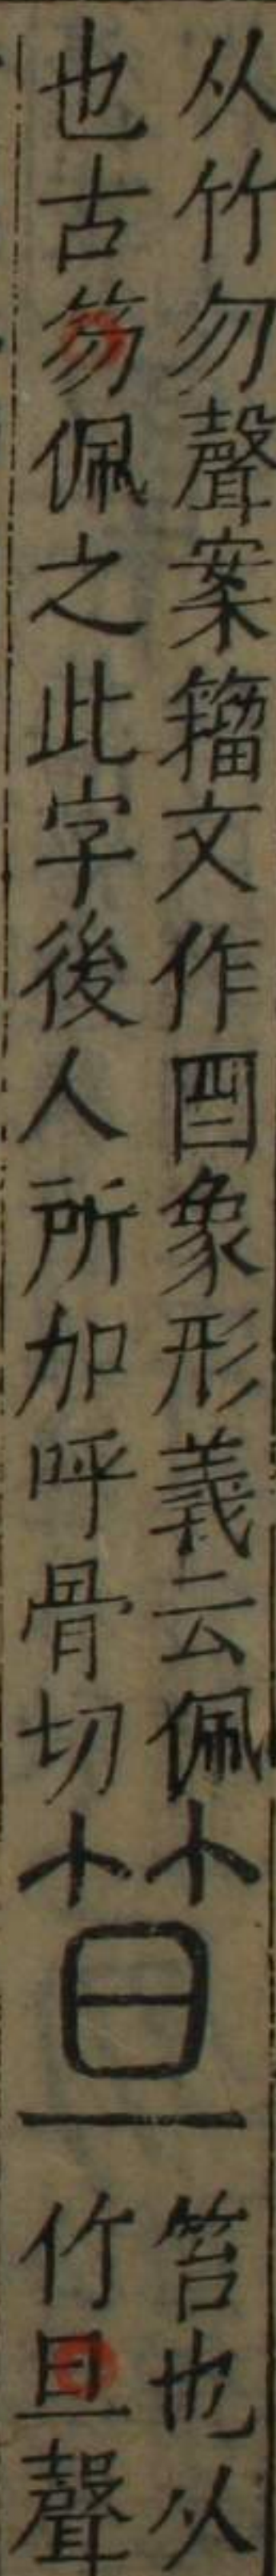 从竹勿聲案籒文作象形義云佩
也古笏佩之此字後人所加呼骨切
笪
笞也从
竹旦聲